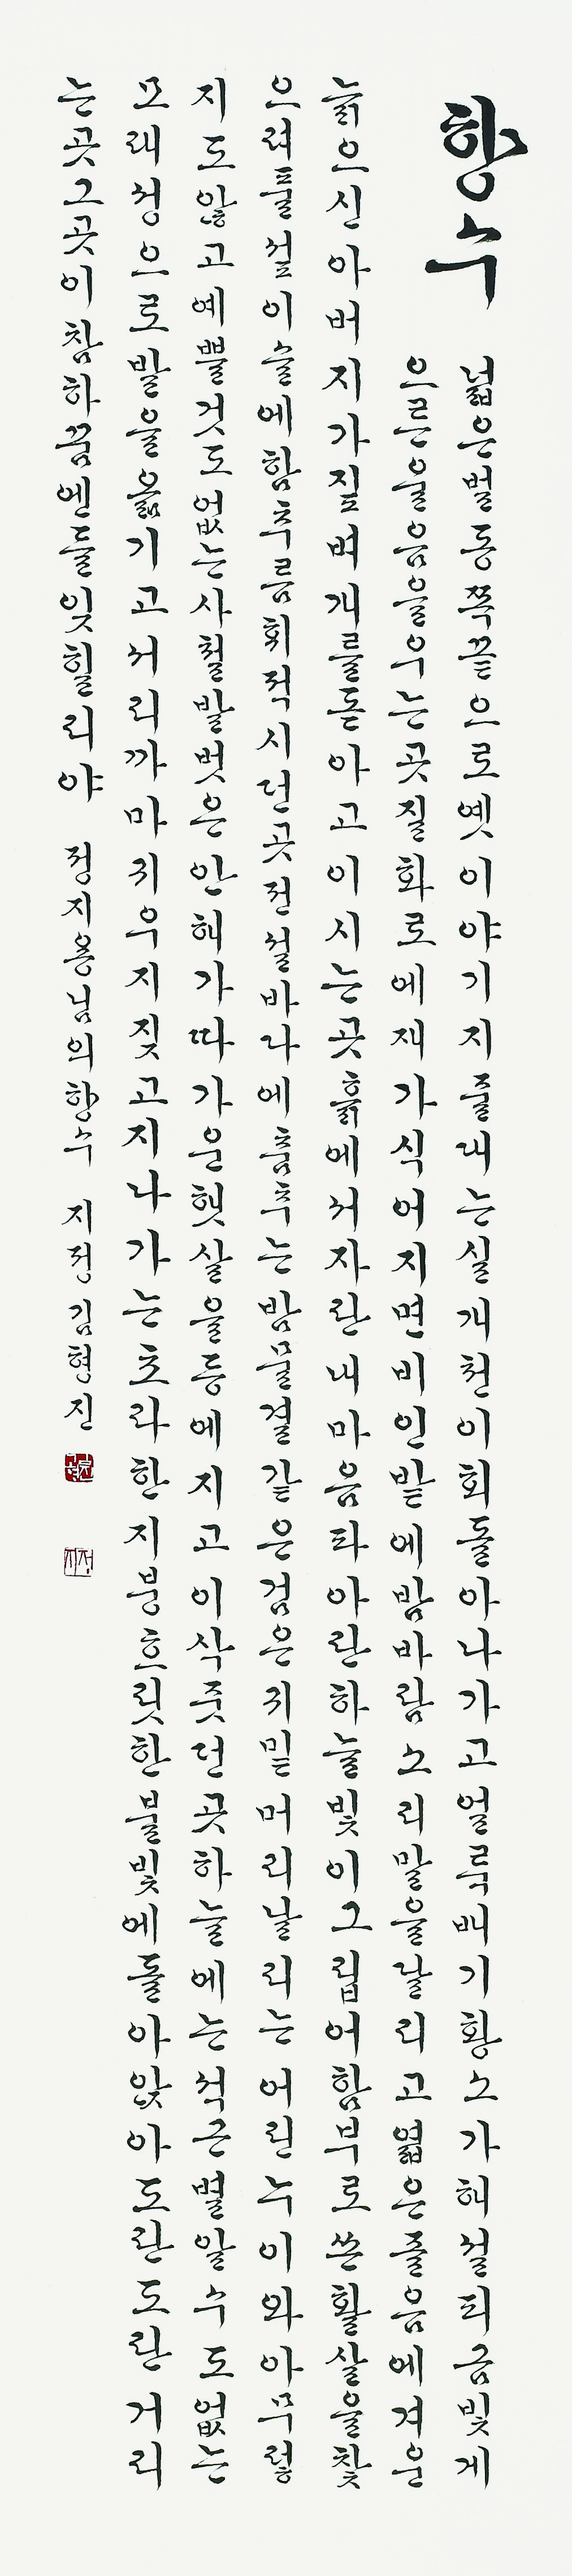 향수
넓은벌동쪽끝으로옛이야기지줄대는실개천이회돌아나가고얼룩배기황소가해설피금빛게
으른울음을우는곳질화로에재가식어지면비인밭에밤바람소리말을달리고엷은졸음에겨운
늙으신아버지가짚벼개를돋아고이시는곳흙에서자란내마음파아란하늘빛이그립어함부로쏜활살을찾
으려풀섶이슬에함추름휘적시던곳전설바다에춤추는밤물결같은검은귀밑머리날리는어린누이와아무렇
지도않고예쁠것도없는사철발벗은안해가따가운햇살을등에지고이삭줏던곳하늘에는석근별알수도없는
모래성으로발을옮기고서리까마귀우지짖고지나가는초라한지붕흐릿한불빛에돌아앉아도란도란거리
는곳그곳이참하꿈엔들잊힐리야 정지용님의향수 지정김형진
지정